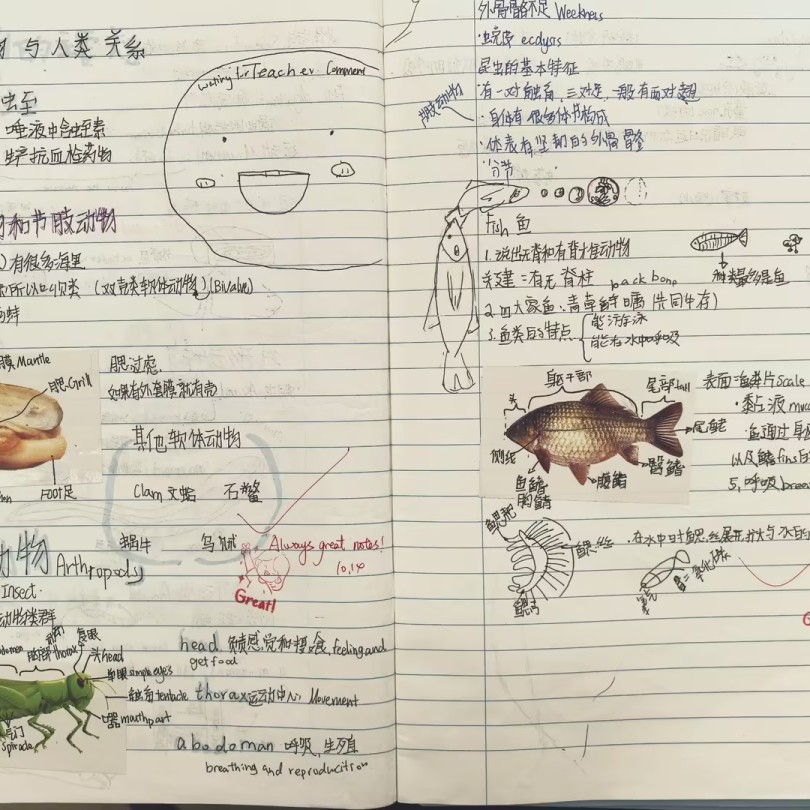 与人类关系
waiting for Teacher Comment
唾液中含蛭素
生产抗血栓药物
和节肢动物
有很多海里
(双壳类软体动物) (Bivalve)
膜 Mantle
鳃-Grill
FOOT足
腮过滤.
如果有外套膜就有壳
其他软体动物
Clam 文蛤 石鳖
蜗牛 乌贼
Always great notes!
10.14
Great!
动物 Arthropods
Insect.
胸部 thorax
复眼
头head
单眼simple eyes
触角 tentacle
口器 mouthpart
气门
Spiracle
head 负责感觉和摄食, feeling and
get food
thorax 运动中心, Movement
abodoman 呼吸, 生殖
breathing and reproducition
外骨骼不足 Weekness
·蜕皮 ecdysis
昆虫的基本特征
·有一对触角, 三对足, 一般有两对翅
节肢动物
·身体有很多体节构成
·体表有坚韧的外骨骼
分节
Fish 鱼
1.说出无脊和有脊椎动物
关键=有无脊柱 back bone
种类最多是鱼
2.四大家鱼: 青草鲢鳙 (共同生存)
3.鱼类的特点
能游泳
能在水中呼吸
头
躯干部
尾部 tail
侧线
尾鳍
胸鳍
腹鳍
臀鳍
表面 鱼类片 Scale
·黏液
·鱼通过身
以及鳍 fins
5.呼吸
鳃耙
鳃丝
·在水中时鳃丝展开扩大与水